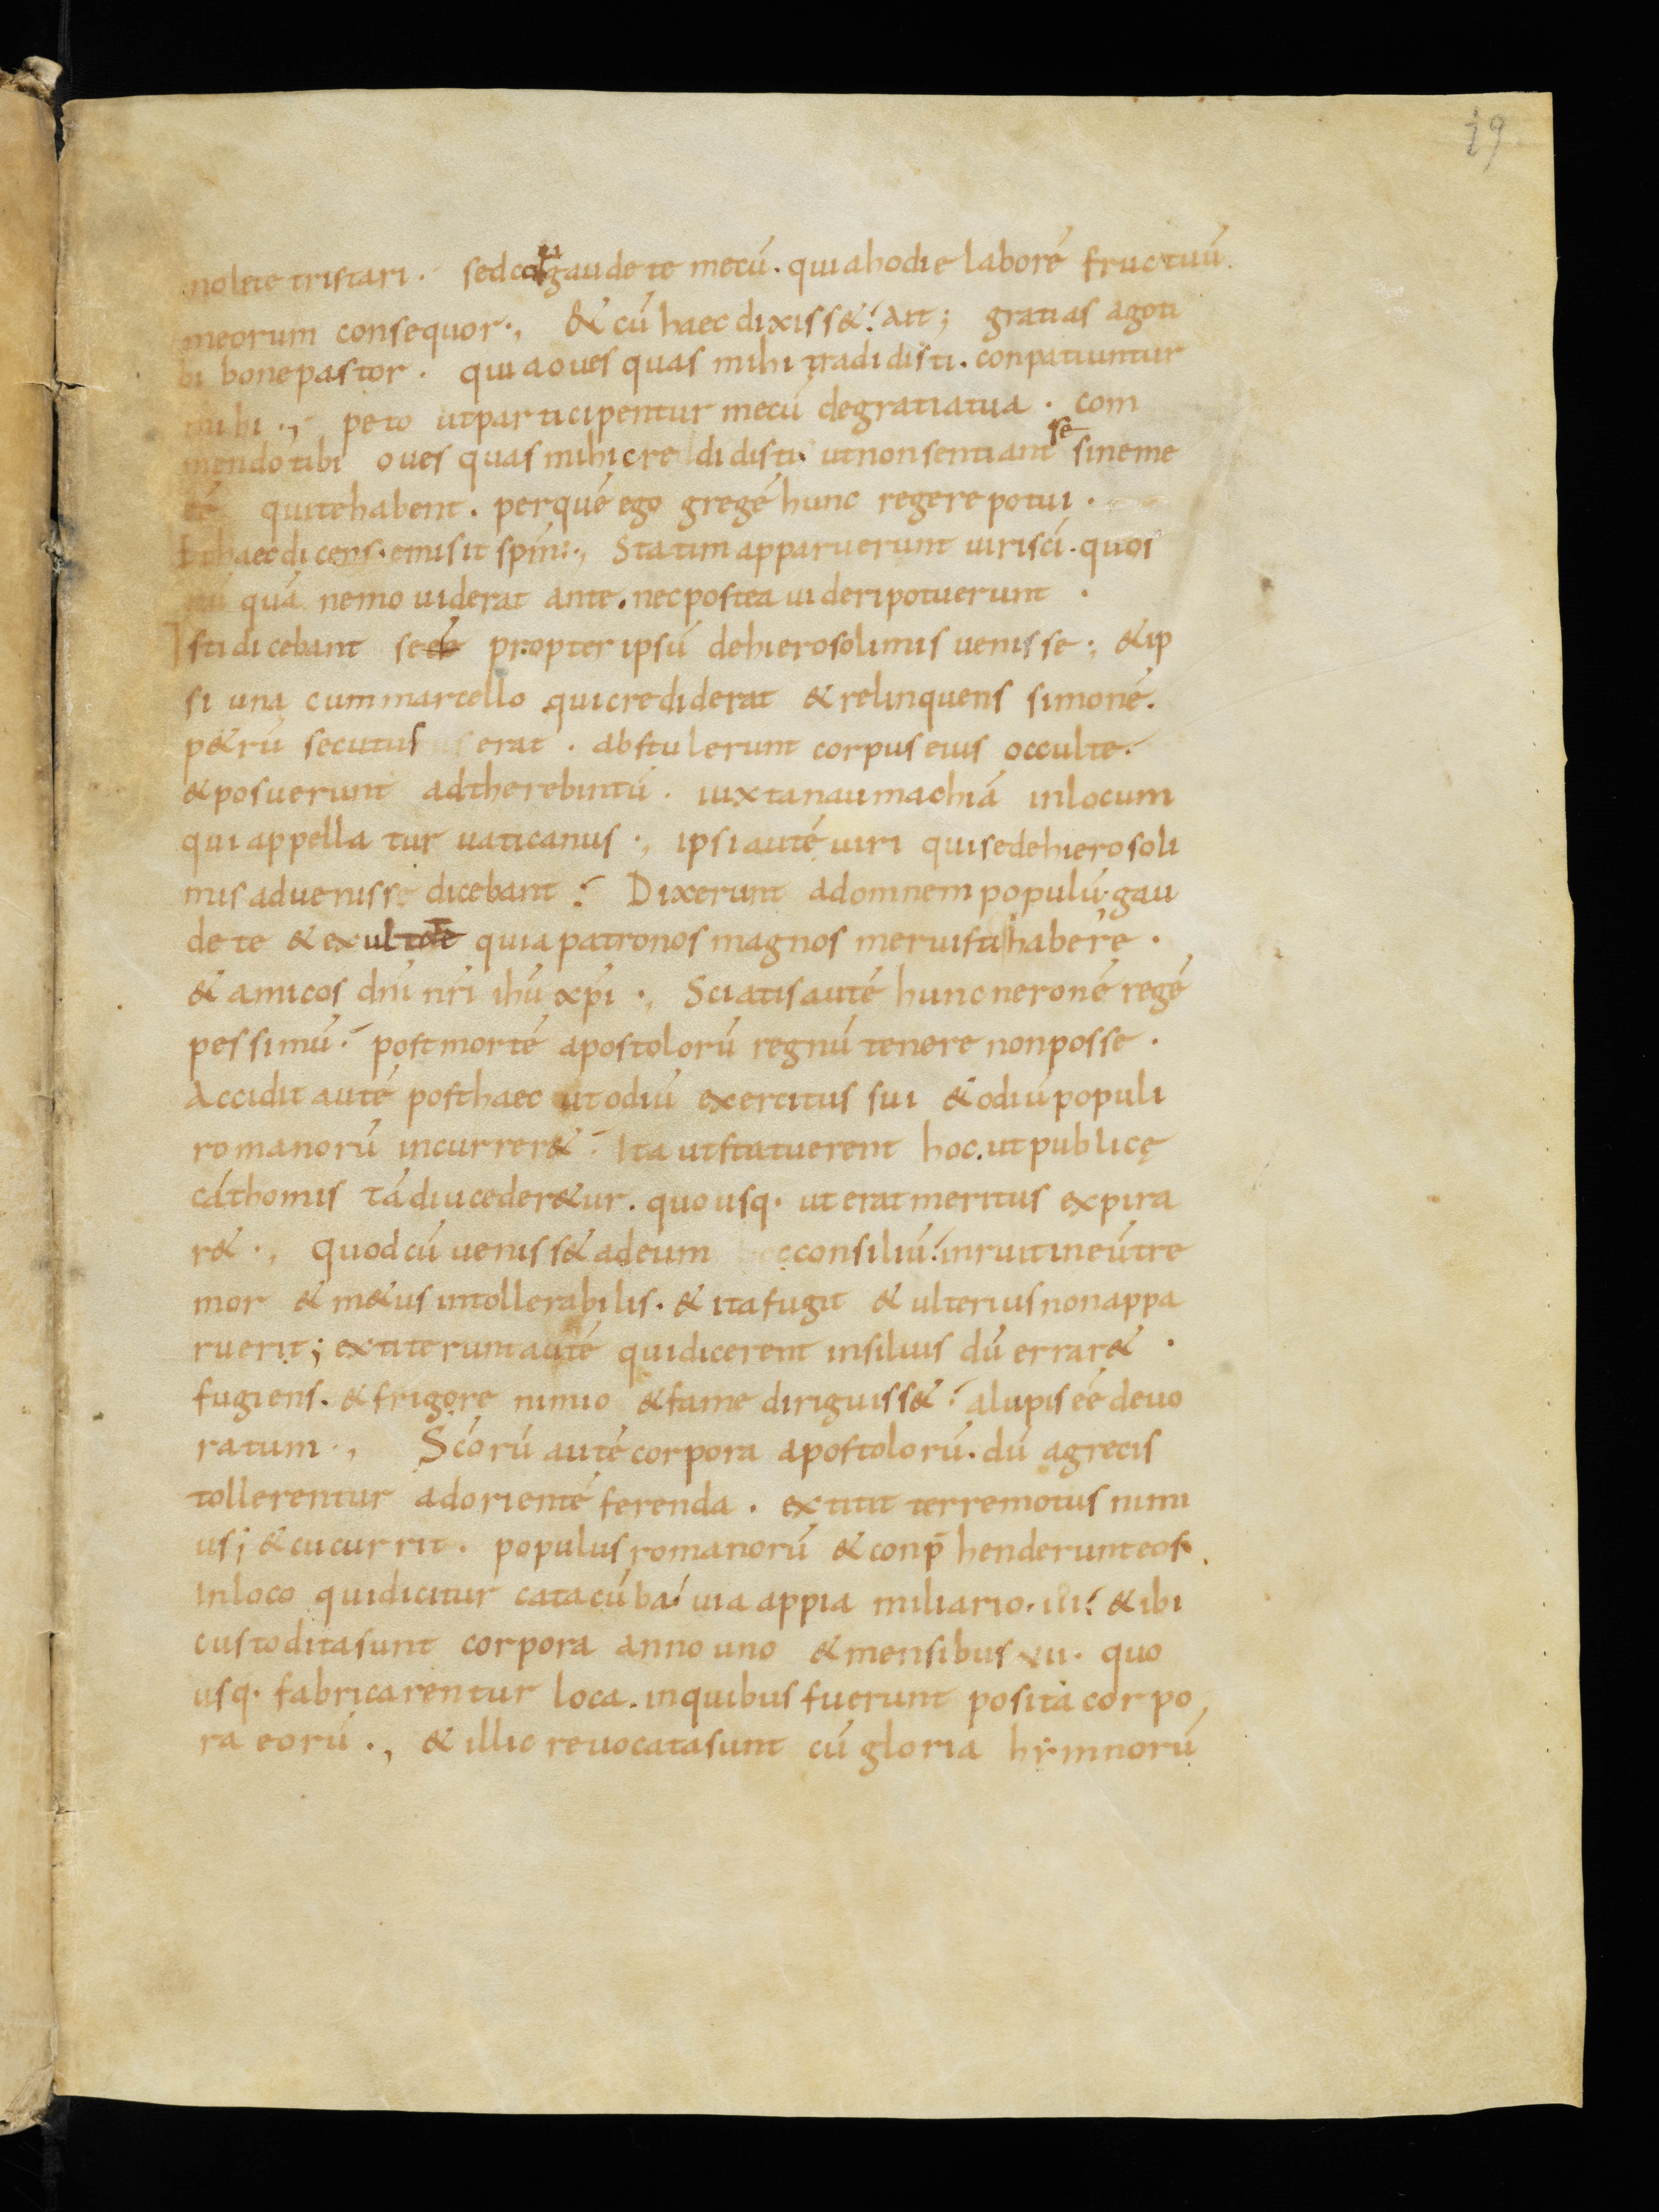 19
nolite tristari. sed congaudete mecū. quia hodie laborē fructuū
meorum consequor., & cū haec dixiss& ait; gratias ago ti
bi bone pastor. quia oues quas mihi tradidisti. conpatiuntur
mihi., peto ut participentur mecū de gratia tua. com
mendo tibi oues quas mihi credidisti. ut non sentiant se sine me
eē qui te habent. per quē ego gregē hunc regere potui.
Et haec dicens. emisit spm., Statim apparuerunt uiri sci. quos
quā nemo uiderat ante. nec postea uideri potuerunt.
Isti dicebant se propter ipsū de hierosolimis uenisse; & ip
si una cum marcello qui crediderat & relinquens simonē.
p&rū secutus erat. abstulerunt corpus eius occulte.
& posuerunt ad therebintū. iuxta naumachiā in locum
qui appellatur uaticanus., ipsi autē uiri qui se de hierosoli
mis aduenisse dicebant. Dixerunt ad omnem populū. gau
dete & exultate quia patronos magnos meruisti habere.
& amicos dni nri ihu xpi., Sciatis autē hunc neronē regē
pessimū. post mortē apostolorū regnū tenere non posse.
Accidit autē post haec ut odiū exercitus sui & odiū populi
romanorū incurrer& Ita ut statuerent hoc. ut publicę
cathomis tādiu ceder&ur. quousq. ut erat meritus expira
r&., Quod cū ueniss& ad eum consiliū. inruit in eū tre
mor & m&us intollerabilis. & ita fugit & ulterius non appa
ruerit; extiterunt autē qui dicerent in siluis dū errar&.
fugiens. & frigore nimio & fame diriguiss& a lupis eē deuo
ratum., Scorū autē corpora apostolorū. dū a grecis
tollerentur ad orientē ferenda. extitit terremotus nimi
us; & cucurrit. populus romanorū & conp̄henderunt eos.
In loco qui dicitur catacūba uia appia miliario. iii. & ibi
custodita sunt corpora anno uno & mensibus vii. quo
usq. fabricarentur loca. in quibus fuerunt posita corpo
ra eorū., & illic reuocata sunt cū gloria hẏmnorū